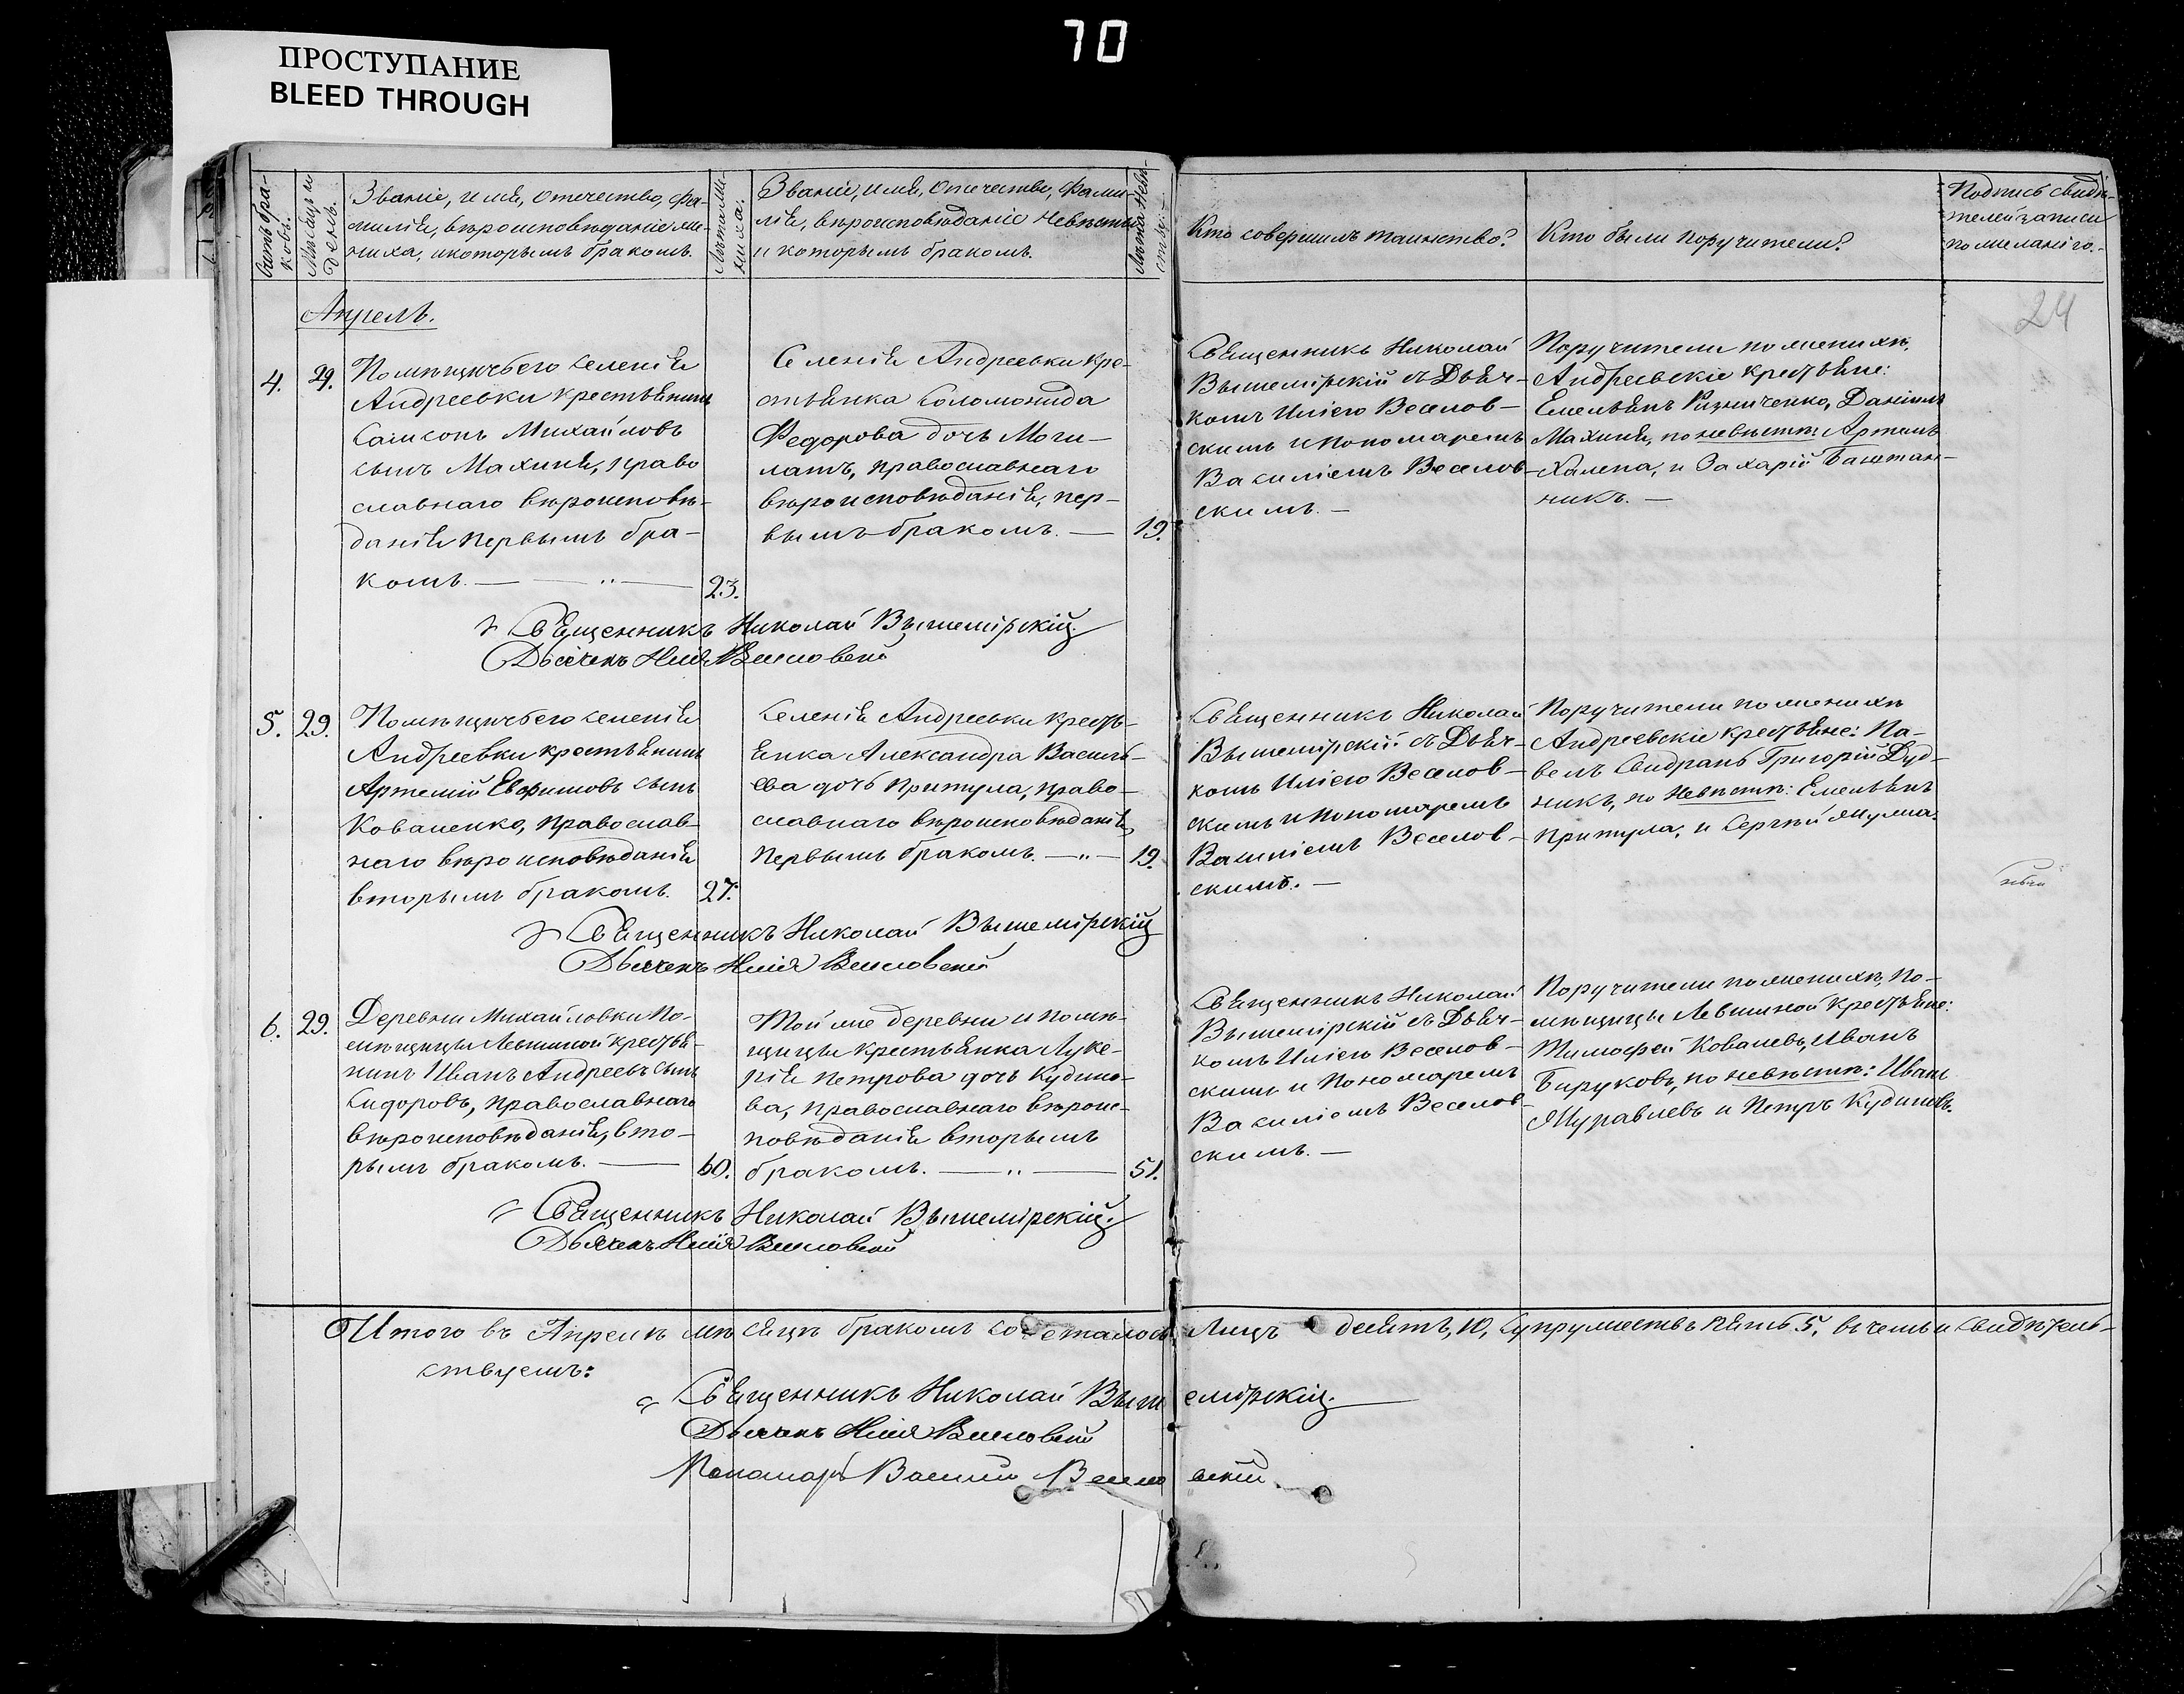 70
ПРОСТУПАНИЕ
BLEED THROUGH
Счетъ бра-
ковъ.
Мѣсяцъ и
день.
Званіе, имя, отечество, фа-
милія, вѣроисповѣданіе же-
ниха, и которымъ бракомъ.
Лѣта же-
ниха.
Званіе, имя, отечество, фами-
лія, вѣроисповѣданіе невѣсты
и которымъ бракомъ.
Лѣта невѣ-
сты.
Кто совершилъ таинство?
Кто были поручители?
Подпись свидѣ-
телей записи
по желанію.
24
Апрель.
4.
29.
Помѣщичьяго селенія
Андреевки крестьянинъ
Самсонъ Михайловъ
сынъ Махиня, право
славнаго вѣроисповѣ-
данія первымъ бра-
комъ.
23.
Селенія Андреевки кре-
стьянка Соломонида
Федорова дочь Моги-
латъ, православнаго
вѣроисповѣданія, пер-
вымъ бракомъ.
19.
Священникъ Николай
Вышемірскій съ Дьяч-
комъ Иліею Веселов-
скимъ и Пономаремъ
Василіемъ Веселов-
скимъ.
Поручители по женихѣ,
Андреевскіе крестьяне:
Емельянъ Ризниченко, Даніилъ
Махиня, по невѣстѣ: Артемъ
Халепа, и Захарій Баштан-
никъ.
Священникъ Николай Вышемірскій.
Дьячекъ Илія Веселовскій
5.
29.
Помѣщичьяго селенія
Андреевки крестьянинъ
Артемій Евфимовъ сынъ
Коваленко, православ-
наго вѣроисповѣданія
вторымъ бракомъ.
27.
Селенія Андреевки кресть-
янка Александра Василь-
ева дочь Притула, право-
славнаго вѣроисповѣданія,
первымъ бракомъ.
19.
Священникъ Николай
Вышемірскій съ Дьяч-
комъ Иліею Веселов-
скимъ и Пономаремъ
Василіемъ Веселов-
скимъ.
Поручители по женихѣ
Андреевскіе крестьяне: Па-
велъ Свидранъ Григорій Дуд-
никъ, по невѣстѣ: Емельянъ
Притула, и Сергѣй
Священникъ Николай Вышемірскій
Дьячекъ Илія Веселовскій
6.
29.
Деревни Михайловки По-
мѣщицы Левшиной кресть-
янинъ Иванъ Андреевъ сынъ
Сидоровъ, православнаго
вѣроисповѣданія, вто-
рымъ бракомъ.
60.
Той же деревни и помѣ-
щицы крестьянка Луке-
рія Петрова дочь Кудино-
ва, православнаго вѣроис-
повѣданія вторымъ
бракомъ.
51.
Священникъ Николай
Вышемірскій съ Дьяч-
комъ Иліею Веселов-
скимъ и Пономаремъ
Василіемъ Веселов-
скимъ.
Поручители по женихѣ, По-
мѣщицы Левшиной крестьяне:
Тимофей Ковалевъ, Иванъ
Бирюковъ, по невѣстѣ: Иванъ
Муравлевъ и Петръ Кудиновъ.
Священникъ Николай Вышемірскій.
Дьячекъ Илія Веселовскій
Итого въ Апрелѣ мѣсяцѣ бракомъ сочеталось Лицъ десять, 10, супружествъ пять 5, въ чемъ и свидѣтель-
ствуемъ:
Священникъ Николай Вышемірскій.
Дьячекъ Илія Веселовскій
Пономарь Василій Веселовскій.